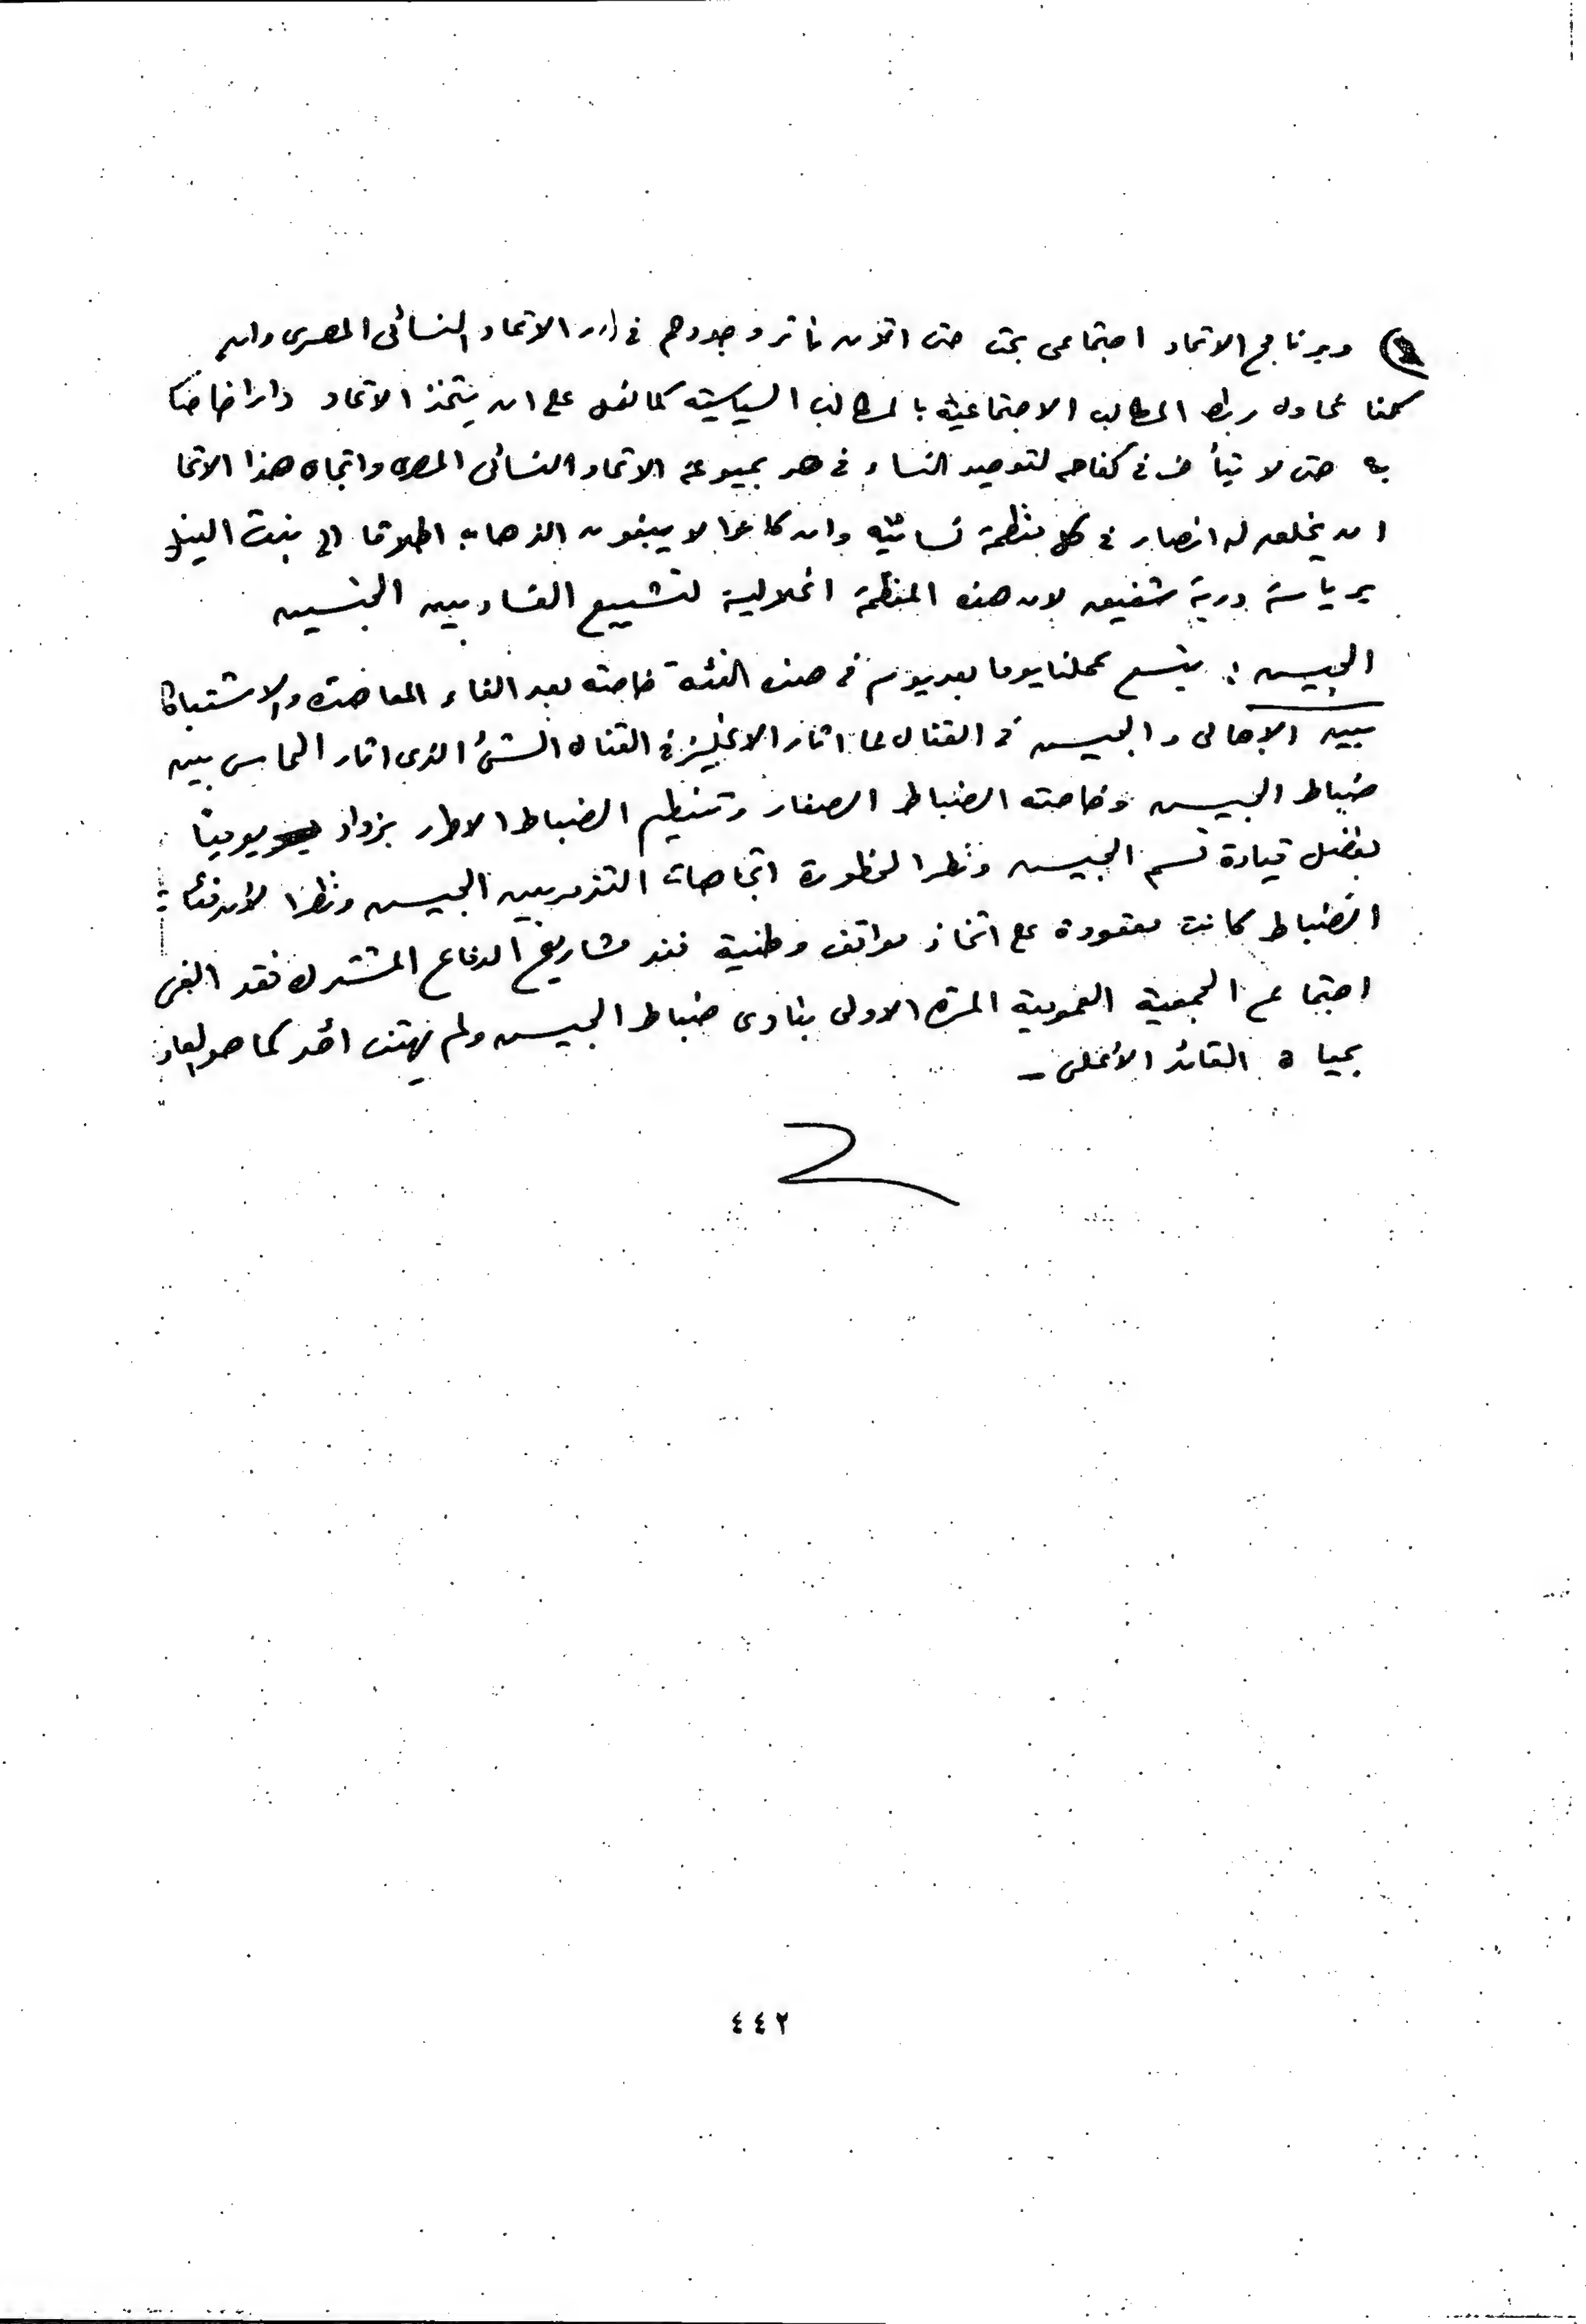 وبرنامج الاتحاد اجتماعى بحت حتى وجودهم فى دار الاتحاد النسائى المصرى وان
كنا نحاول ربط المطالب الاجتماعية بالمطالب السياسية كما نعمل على ان يتخذ الاتحاد دارا خاصا
به حتى لا فى كفاحه لتوحيد النساء فى مجموعة الاتحاد النسائى المصرى واتجاه هذا الاتحا
ان يخلق له انصار فى كل منظمة نسائية وان كانوا لا يبغون الذهاب اطلاقا الى بنت النيل
برياسة درية شفيق لان هذه المنظمة انحلالية لتشييع الفساد بين الجنسين
الجيش : يتسع عملنا يوما بعد يوم فى هذه الفئة خاصة بعد الغاء المعاهدة والاشتباكا
بين الاهالى والجيش فى القتال مما اثار الانجليز فى القناة الشئ الذى اثار الحماس بين
ضباط الجيش وخاصة الضباط الصغار وتنظيم الضباط الاحرار يزداد يوميا
بفضل قيادة قسم الجيش ونظرا لخطورة اتجاهات التذمر بين الجيش ونظرا لأن
الضباط كانت معقودة على اتخاذ مواقف وطنية ضد مشاريع الدفاع المشترك فقد الغى
اجتماع الجمعية العمومية المرة الاولى بنادى ضباط الجيش ولم يهتف أحد كما هو
بحياة القائد الأعلى -
٤٤٢